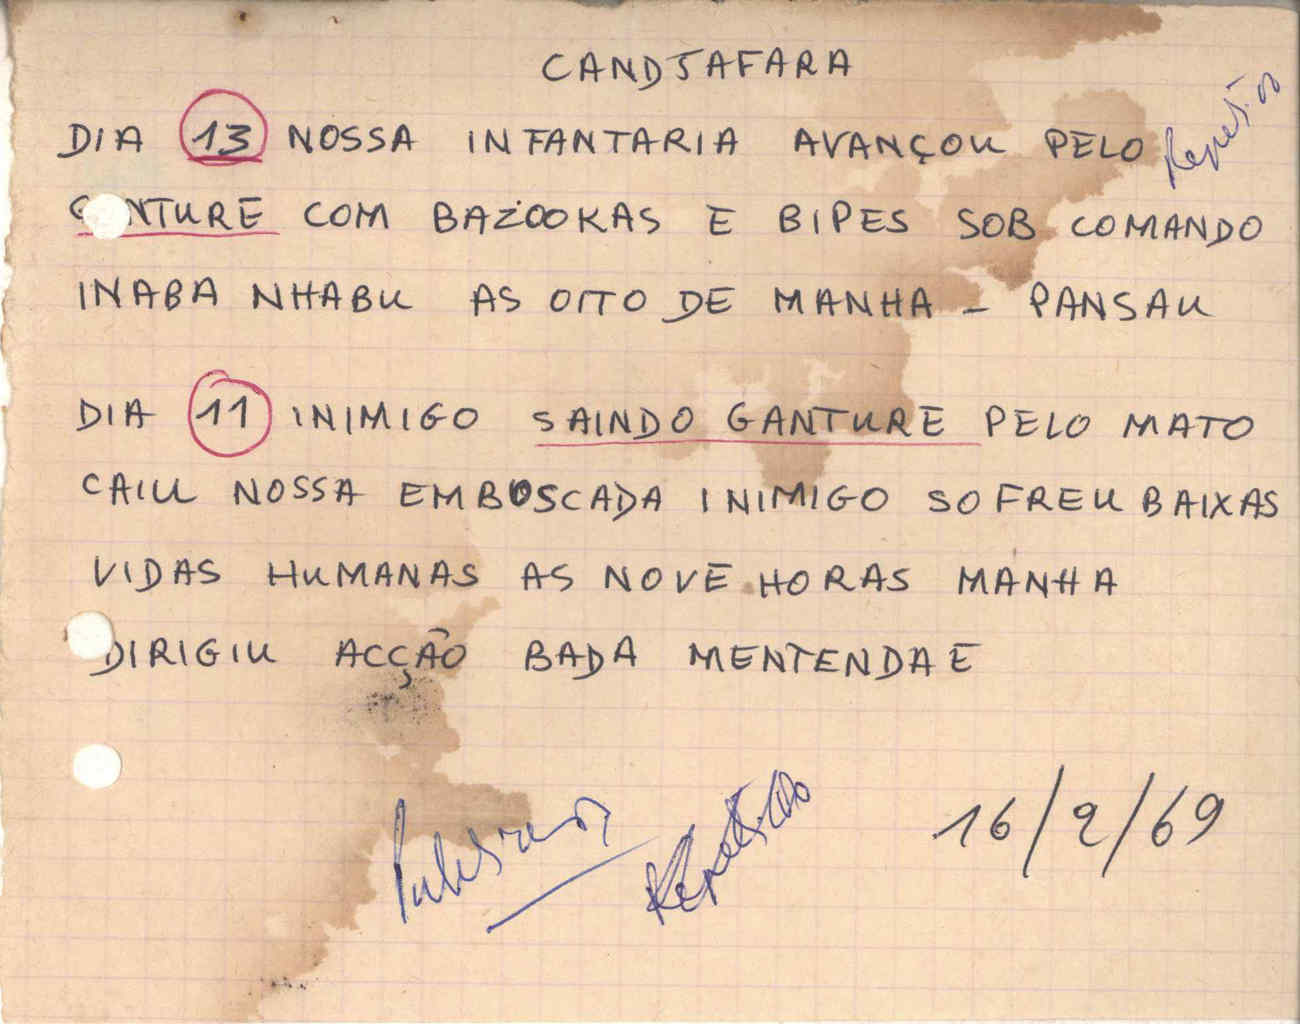 CANDJAFARA
DIA 13 NOSSA INFANTARIA AVANÇOU PELO
GANTURE COM BAZOOKAS E BIPES SOB COMANDO
INABA NHABU AS OITO DE MANHA - PANSAU
DIA 11 INIMIGO SAINDO GANTURE PELO MATO
CAIU NOSSA EMBOSCADA INIMIGO SOFREU BAIXAS
VIDAS HUMANAS AS NOVE HORAS MANHA
DIRIGIU ACÇÃO BADA MENTENDAE
Repetido
16/2/69